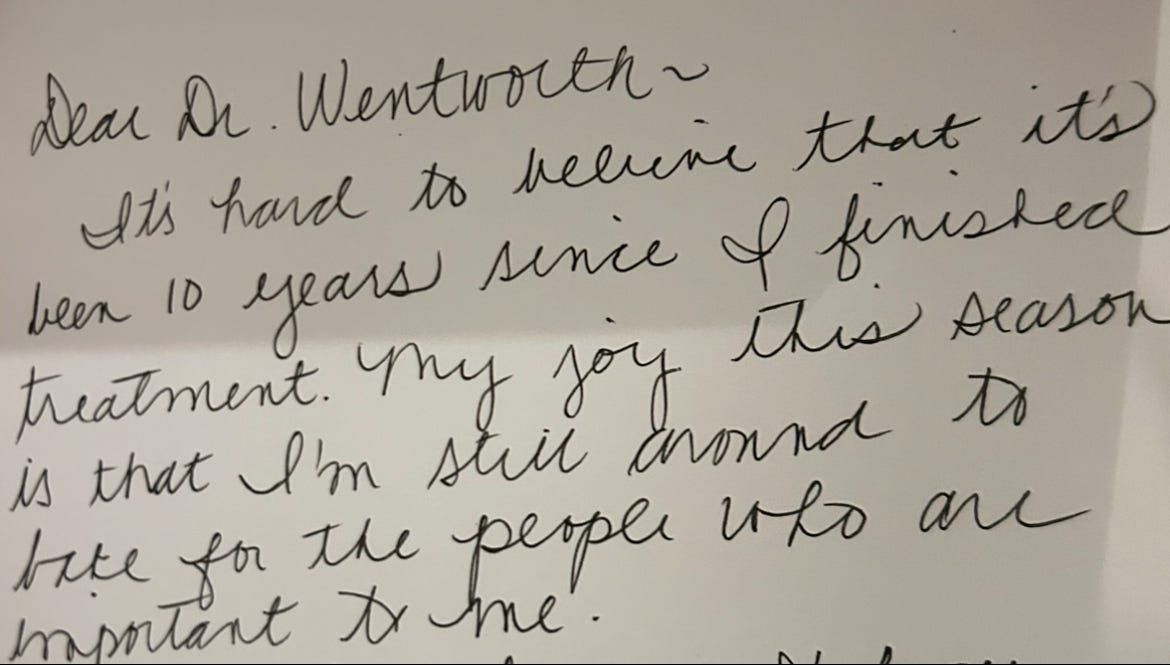 Dear Dr. Wentworth~
It's hard to believe that it's
been 10 years since I finished
treatment. My joy this season
is that I'm still around to
bake for the people who are
important to me.